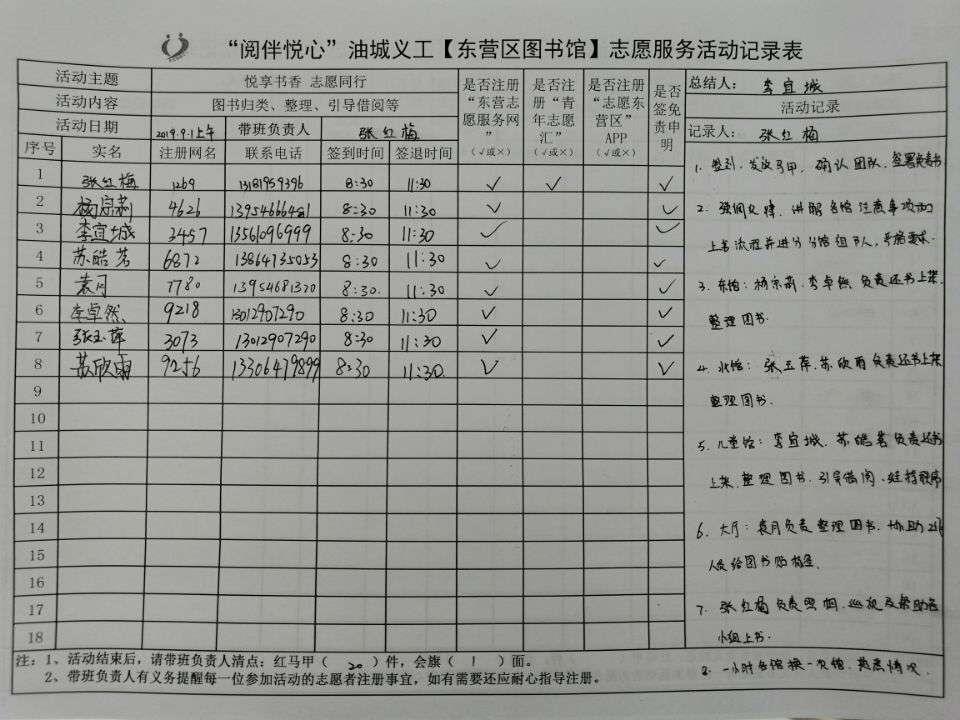 “阅伴悦心”油城义工【东营区图书馆】志愿服务活动记录表
活动主题 悦享书香 志愿同行
活动内容 图书归类、整理、引导借阅等
活动日期 2019.9.1上午 带班负责人 张红梅
是否注册“东营志愿服务网” (√或×)
是否注册“青年志愿汇” (√或×)
是否注册“志愿东营区”APP (√或×)
是否签免责申明
序号 实名 注册网名 联系电话 签到时间 签退时间
1 张红梅 1269 13181959396 8:30 11:30 √ √ √
2 杨宗莉 4626 8:30 11:30 √ √
3 李宜城 3457 13561096999 8:30 11:30 √ √
4 苏皓茗 6872 13864735053 8:30 11:30 √ √
5 袁月 7780 13954681320 8:30 11:30 √ √
6 李卓然 9218 13012907290 8:30 11:30 √ √
7 张玉萍 3073 13012907290 8:30 11:30 √ √
8 苏欣雨 9256 13306479899 8:30 11:30 √ √
9
10
11
12
13
14
15
16
17
18
总结人: 李宜城
活动记录
记录人: 张红梅
1. 签到,发放马甲,确认团队,签署免责书
2. 强调纪律,讲解各馆注意事项和
上书流程并进行分馆组
3. 东馆:杨宗莉,李卓然负责还书上架,
整理图书.
4. 北馆:张玉萍,苏欣雨负责还书上架
整理图书.
5. 儿童馆:李宜城,苏皓茗负责还书
上架,整理图书.引导借阅,维持秩序
6. 大厅:袁月负责整理图书.协助
人员给图书贴
7. 张红梅负责照相,巡视及帮助各
小组上书.
8. 一小时各馆换一次馆,
注:1、活动结束后,请带班负责人清点:红马甲( 20 )件,会旗( 1 )面。
2、带班负责人有义务提醒每一位参加活动的志愿者注册事宜,如有需要还应耐心指导注册。